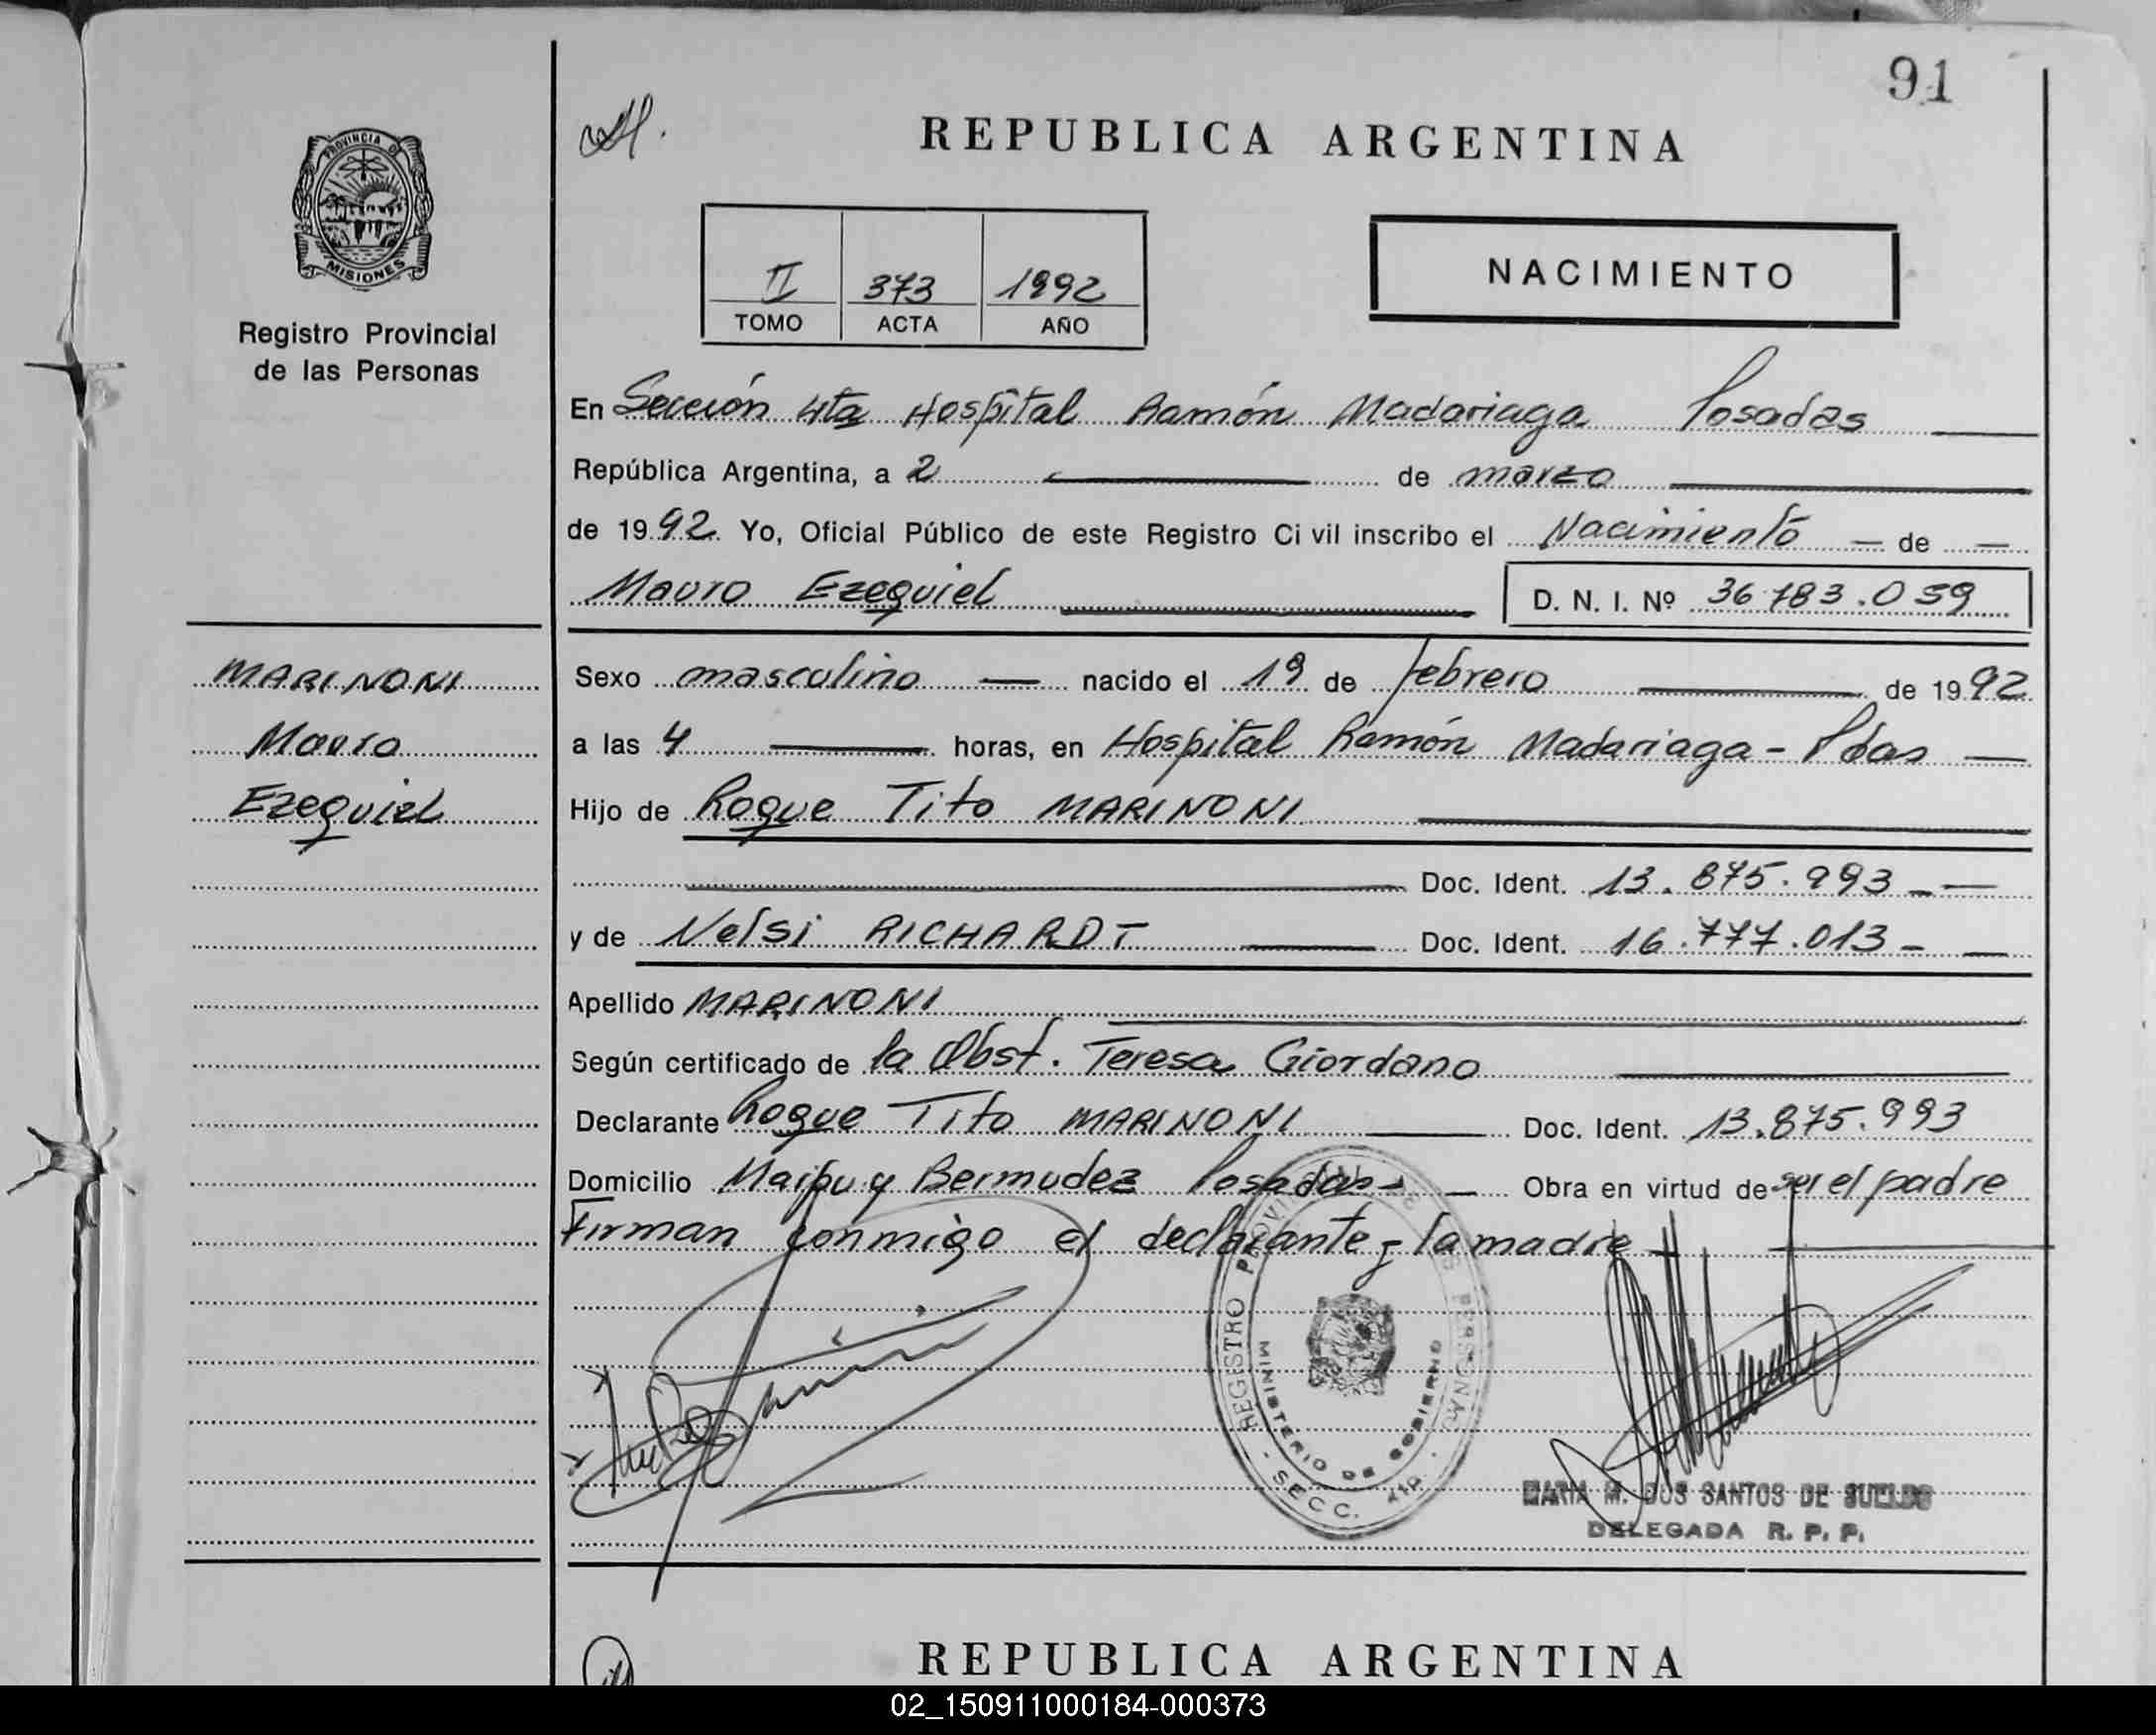 91
REPUBLICA ARGENTINA
PROVINCIA DE
MISIONES
Registro Provincial
de las Personas
II 373 1992
TOMO ACTA AÑO
NACIMIENTO
En Sección 4ta Hospital Ramón Madariaga Posadas
República Argentina, a 2 de marzo
de 1992. Yo, Oficial Público de este Registro Civil inscribo el Nacimiento de
Mauro Ezequiel D. N. I. Nº 36.183.059
MARINONI
Mauro
Ezequiel
Sexo masculino nacido el 19 de febrero de 1992
a las 4 horas, en Hospital Ramón Madariaga - Pdas
Hijo de Roque Tito MARINONI
Doc. Ident. 13.875.993
y de Nelsi RICHARDT Doc. Ident. 16.777.013
Apellido MARINONI
Según certificado de la Obst. Teresa Giordano
Declarante Roque Tito MARINONI Doc. Ident. 13.875.993
Domicilio Maipu y Bermudez Posadas Obra en virtud de ser el padre
Firman conmigo el declarante y la madre
REGISTRO PROVINCIAL DE LAS PERSONAS
MINISTERIO DE GOBIERNO
- SECC. 4ta. -
MARIA M. DOS SANTOS DE
DELEGADA R. P. P.
REPUBLICA ARGENTINA
02_150911000184-000373